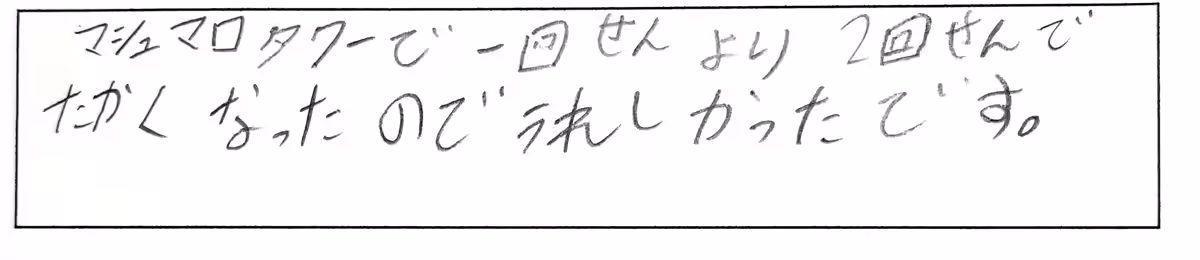 マシュマロタワーで一回せんより2回せんで
たかくなったのでうれしかったです。